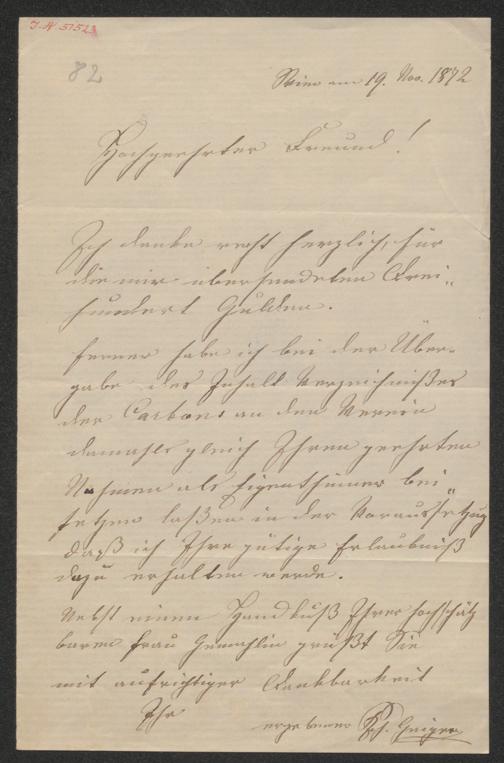 I. N. 51523
82
Wien am 19. Nov. 1872
Hochgeehrter Freund!
Ich danke recht herzlich, für
die mir übersendeten Drei„
hundert Gulden.
Ferner habe ich bei der Über„
gabe des Inhalt Verzeichnißes
der Cartons an den Verein
damahls gleich Ihren geehrten
Nahmen als Eigenthümer bei„
setzen laßen in der Voraussetzung
daß ich Ihre gütige Erlaubniß
dazu erhalten werde.
Nebst einen Handkuß Ihrer hochschätz
baren Frau Gemahlin grüßt Sie
mit aufrichtiger Dankbarkeit
Ihr
ergebener Geiger